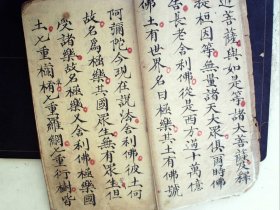 進菩薩與如是等諸大菩薩及釋
提桓因等無量諸天大眾俱爾時佛
告長老舍利佛從是西方過十萬億
佛土有世界名曰極樂其土有佛號
阿彌陀今現在說法舍利佛彼土何
故名為極樂其國眾生無有眾苦但
受諸樂故名極樂又舍利佛極樂國
土七重欄楯七重羅網七重行樹皆